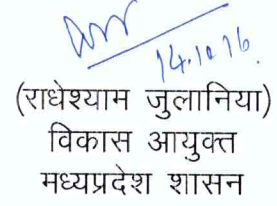 14.10.16
(राधेश्याम जुलानिया)
विकास आयुक्त
मध्यप्रदेश शासन